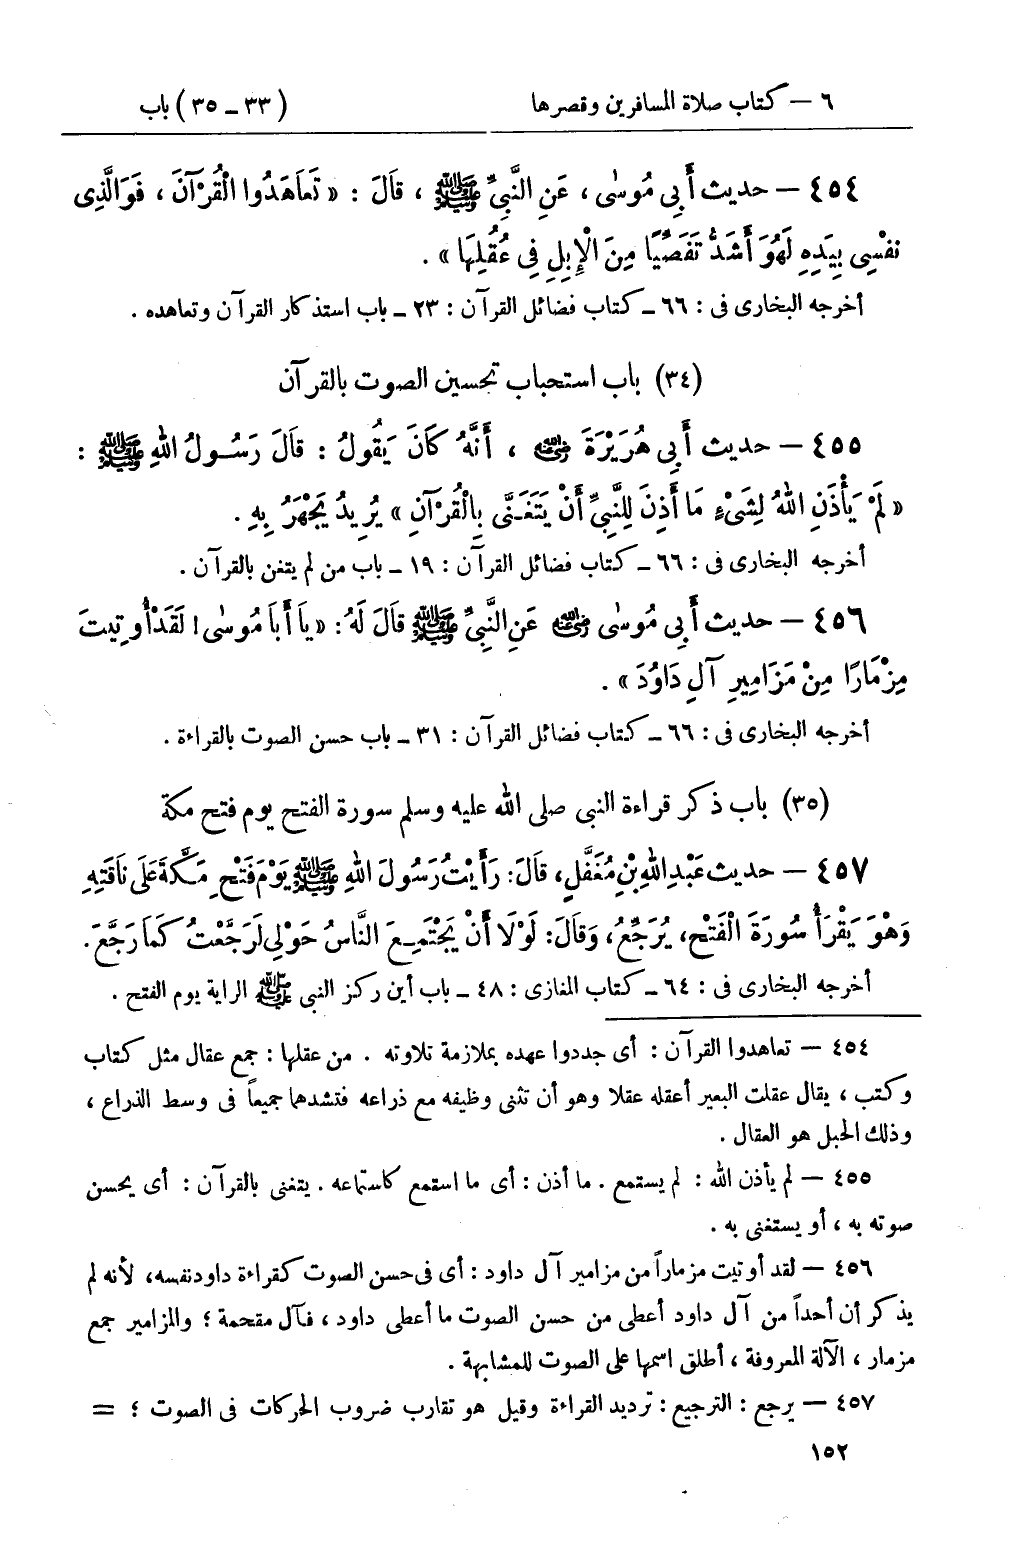 ٦ – كتاب صلاة المسافرين وقصرها (٣٣ – ٣٥) باب
٤٥٤ – حديث أَبِي مُوسٰى ، عَنِ النَّبِيِّ ﷺ ، قَالَ : « تَعَاهَدُوا الْقُرْآنَ ، فَوَالَّذِى
نفْسِى بِيَدِهِ لَهُوَ أَشَدُّ تَفَصِّيًا مِنَ الْإِبِلِ فِى عُقُلِهَا » .
أخرجه البخارى فى : ٦٦ – كتاب فضائل القرآن : ٢٣ – باب استذكار القرآن وتعاهده .
(٣٤) باب استحباب تحسين الصوت بالقرآن
٤٥٥ – حديث أَبِى هُرَيْرَةَ رضي الله عنه ، أَنَّهُ كَانَ يَقُولُ : قَالَ رَسُولُ اللهِ ﷺ :
« لَمْ يَأْذَنِ اللهُ لِشَىْءٍ مَا أَذِنَ لِلنَّبِيِّ أَنْ يَتَغَنَّى بِالْقُرْآنِ » يُرِيدُ يَجْهَرُ بِهِ .
أخرجه البخارى فى : ٦٦ – كتاب فضائل القرآن : ١٩ – باب من لم يتغن بالقرآن .
٤٥٦ – حديث أَبِي مُوسٰى رضي الله عنه عَنِ النَّبِيِّ ﷺ قَالَ لَهُ : « يَا أَبَا مُوسٰى ! لَقَدْ أُوتِيتَ
مِزْمَارًا مِنْ مَزَامِيرِ آلِ دَاوُدَ » .
أخرجه البخارى فى : ٦٦ – كتاب فضائل القرآن : ٣١ – باب حسن الصوت بالقراءة .
(٣٥) باب ذكر قراءة النبى صلى الله عليه وسلم سورة الفتح يوم فتح مكة
٤٥٧ – حديث عَبْدِ اللهِ بْنِ مُغَفَّلٍ، قَالَ: رَأَيْتُ رَسُولَ اللهِ ﷺ يَوْمَ فَتْحِ مَكَّةَ عَلَى نَاقَتِهِ
وَهْوَ يَقْرَأُ سُورَةَ الْفَتْحِ، يُرَجِّعُ، وَقَالَ: لَوْلَا أَنْ يَجْتَمِعَ النَّاسُ حَوْلِى لَرَجَّعْتُ كَمَا رَجَّعَ.
أخرجه البخارى فى : ٦٤ – كتاب المغازى : ٤٨ – باب أين ركز النبى ﷺ الراية يوم الفتح .
٤٥٤ – تعاهدوا القرآن : أى جددوا عهده بملازمة تلاوته . من عقلها : جمع عقال مثل كتاب
وكتب ، يقال عقلت البعير أعقله عقلا وهو أن تثنى وظيفه مع ذراعه فتشدهما جميعاً فى وسط الذراع ،
وذلك الحبل هو العقال .
٤٥٥ – لم يأذن الله : لم يستمع . ما أذن : أى ما استمع كاستماعه . يتغنى بالقرآن : أى يحسن
صوته به ، أو يستغنى به .
٤٥٦ – لقد أوتيت مزماراً من مزامير آل داود : أى فى حسن الصوت كقراءة داود نفسه، لأنه لم
يذكر أن أحداً من آل داود أعطى من حسن الصوت ما أعطى داود ، فآل مقحمة ؛ والمزامير جمع
مزمار ، الآلة المعروفة ، أطلق اسمها على الصوت للمشابهة .
٤٥٧ – يرجع : الترجيع : ترديد القراءة وقيل هو تقارب ضروب الحركات فى الصوت ؛ =
١٥٢